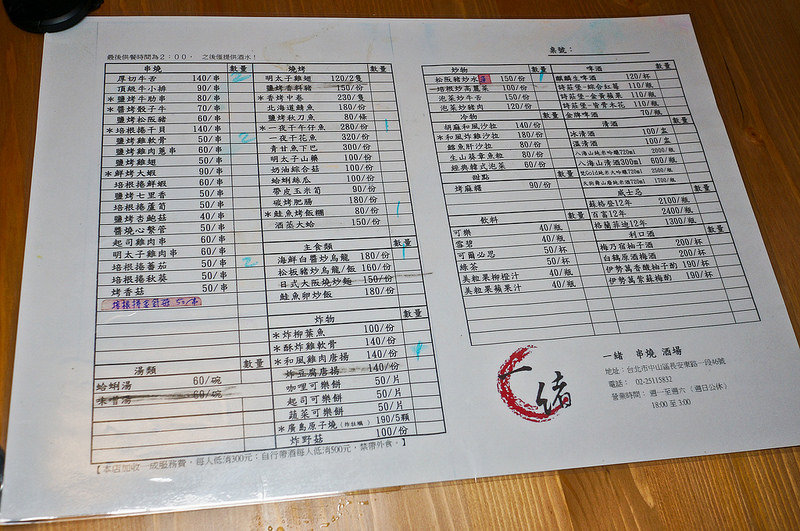 最後供餐時間為2：00， 之後僅提供酒水！
桌號：
串燒 數量
厚切牛舌 140/串
頂級牛小排 90/串
＊鹽烤牛肋串 80/串
＊醬燒骰子牛 70/串
鹽烤松阪豬 60/串
＊培根捲干貝 140/串
鹽烤雞軟骨 50/串
鹽烤雞肉蔥串 60/串
鹽烤雞翅 50/串
＊鮮烤大蝦 90/串
培根捲鮮蝦 60/串
鹽烤七里香 50/串
培根捲蘆筍 50/串
鹽烤杏鮑菇 40/串
醬燒心繫管 50/串
起司雞肉串 60/串
明太子雞肉串 60/串
培根捲番茄 50/串
培根捲秋葵 50/串
烤香菇 50/串
培根捲金針菇 50/串
湯類 數量
蛤蜊湯 60/碗
味噌湯 60/碗
燒烤 數量
明太子雞翅 120/2隻
鹽烤香料豬 150/份
＊香烤中卷 230/隻
北海道鯖魚 180/份
鹽烤秋刀魚 80/條
＊一夜干午仔魚 280/份
一夜干花魚 320/份
青甘魚下巴 300/份
明太子山藥 100/份
奶油綜合菇 100/份
蛤蜊絲瓜 100/份
帶皮玉米筍 90/份
碳烤肥腸 180/份
＊鮭魚烤飯糰 80/份
酒蒸大蛤 150/份
主食類 數量
海鮮白醬炒烏龍 180/份
松板豬炒烏龍/飯 160/份
日式大阪燒炒麵 150/份
鮭魚卵炒飯 180/份
炸物 數量
＊炸柳葉魚 100/份
＊酥炸雞軟骨 140/份
＊和風雞肉唐揚 140/份
炸豆腐唐揚 140/份
咖哩可樂餅 50/片
起司可樂餅 50/片
蔬菜可樂餅 50/片
＊廣島原子燒（炸牡蠣） 190/5顆
炸野菇 100/份
【本店加收一成服務費，每人低消300元；自行帶酒每人低消500元，禁帶外食。】
炒物 數量
松阪豬炒水蓮 150/份
培根炒高麗菜 100/份
泡菜炒牛舌 150/份
泡菜炒豬肉 120/份
冷物 數量
胡麻和風沙拉 140/份
＊和風炸雞沙拉 180/份
鱈魚肝沙拉 80/份
生山葵章魚粒 80/份
經典韓式泡菜 60/份
甜點 數量
烤麻糬 90/份
飲料 數量
可樂 40/瓶
雪碧 40/瓶
可爾必思 50/杯
綠茶 50/杯
美粒果柳橙汁 40/瓶
美粒果蘋果汁 40/瓶
啤酒 數量
麒麟生啤酒 120/杯
金牌啤酒 70/瓶
清酒 數量
冰清酒 100/盅
溫清酒 100/盅
八海山純米吟釀720ml 2000/瓶
八海山清酒300ml 600/瓶
威士忌 數量
蘇格登12年 2100/瓶
百富12年 2400/瓶
格蘭菲迪12年 1300/瓶
利口酒 數量
梅乃宿柚子酒 200/杯
白鶴原酒梅酒 200/杯
伊勢萬香酸柚子酌 190/杯
伊勢萬紫蘇梅酌 190/杯
一緒
一緒 串燒 酒場
地址：台北市中山區長安東路一段46號
電話： 02-25115832
營業時間： 週一至週六 （週日公休）
18:00 至 3:00